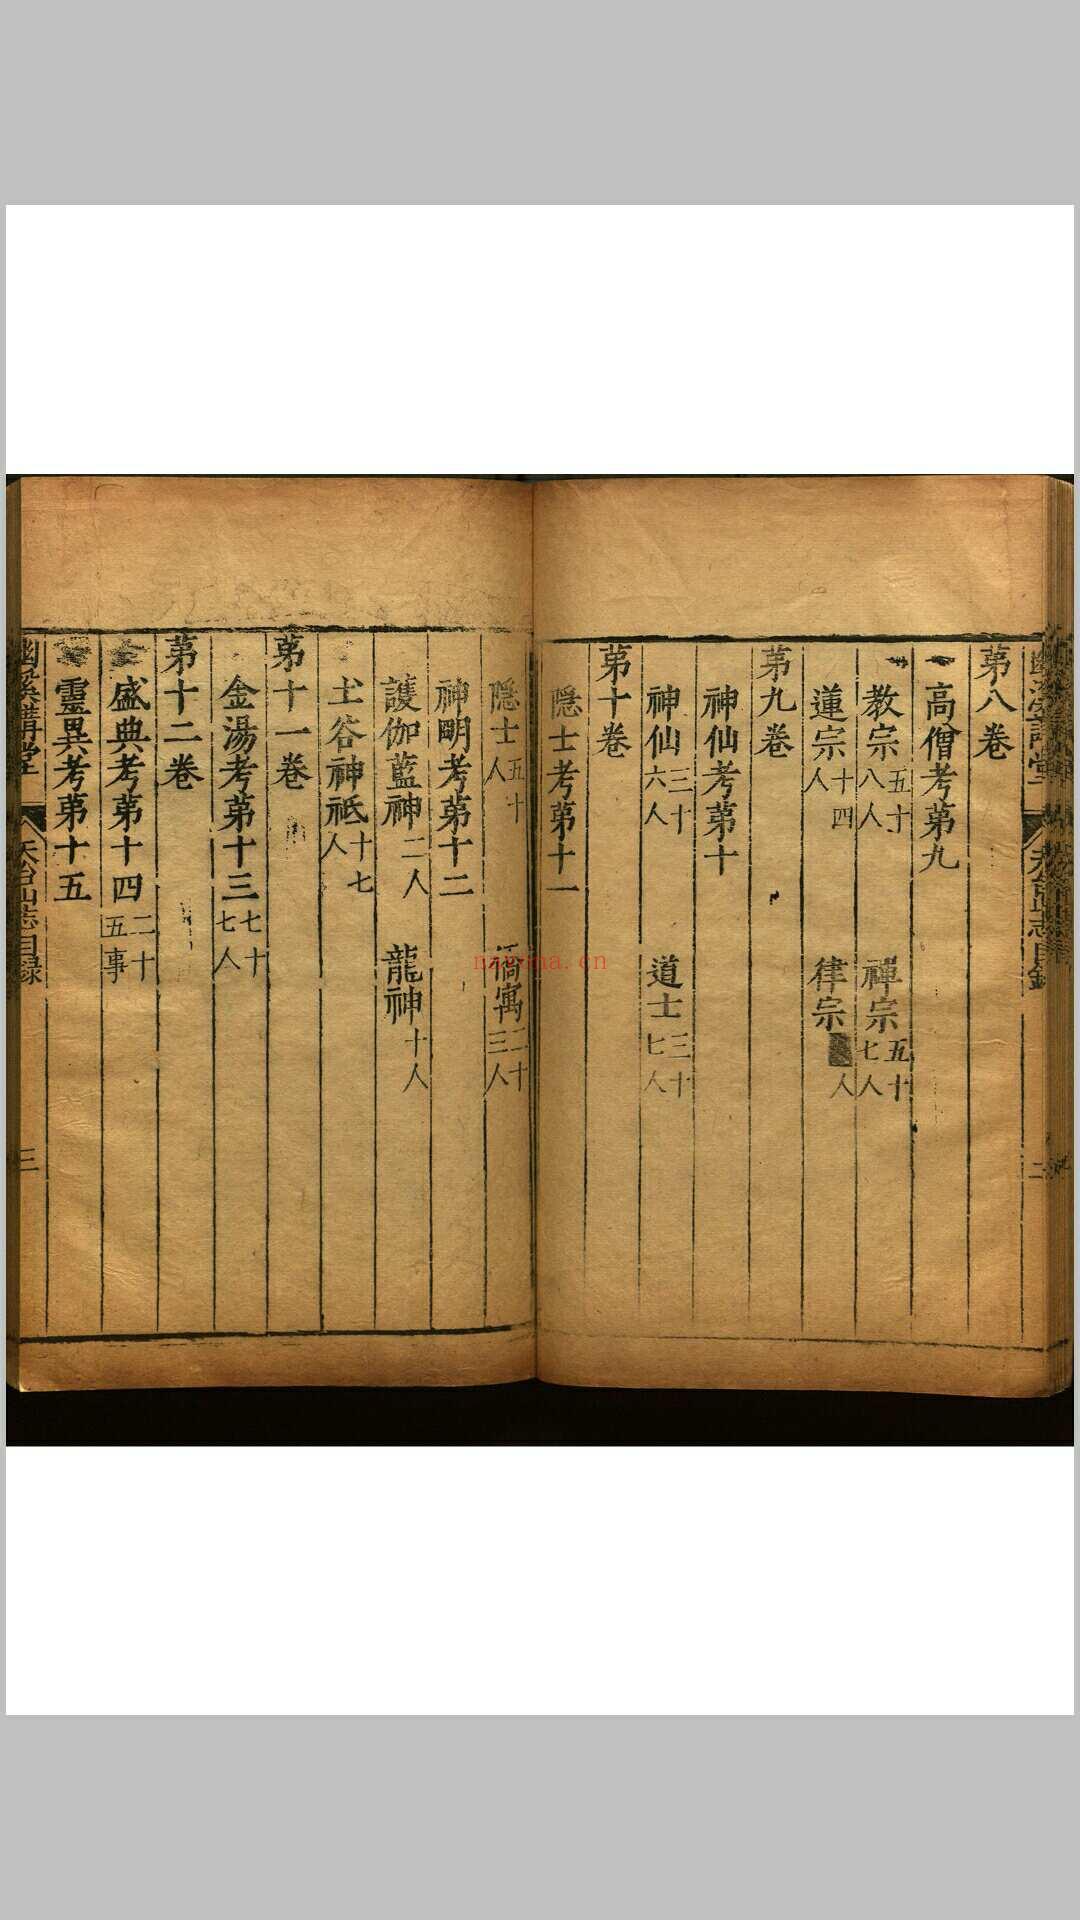 第八卷
高僧考第九
教宗五十八人 禪宗五十七人
蓮宗十四人 律宗人
第九卷
神仙考第十
神仙三十六人 道士三十七人
第十卷
隱士考第十一
天台山志目錄
二
隱士五十人 僑寓二十三人
神明考第十二
護伽藍神二人 龍神十人
土谷神祇十七人
第十一卷
金湯考第十三七十七人
第十二卷
盛典考第十四二十五事
靈異考第十五
幽溪講堂
天台山志目錄
三
nayona.cn